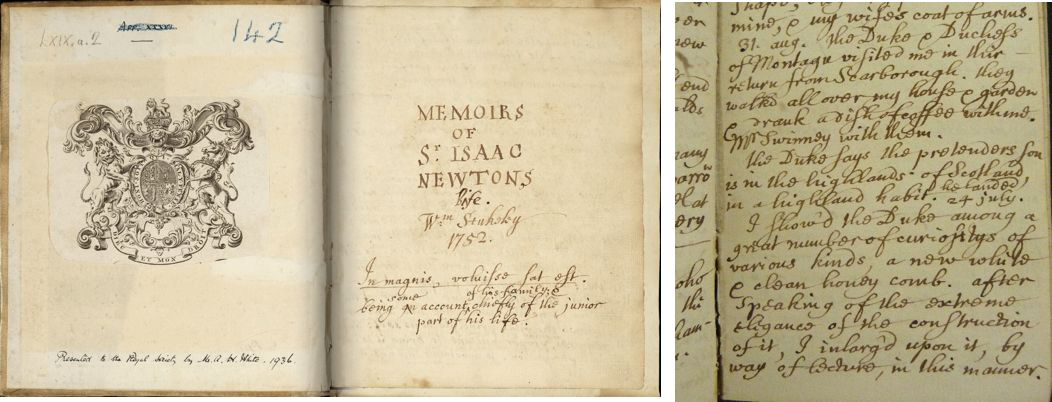 LXIX.a.2
142
DIEU ET MON DROIT
Presented to the Royal Society by Mr. A. H. White. 1936.
MEMOIRS
OF
Sr. ISAAC
NEWTONS
life.
Wm. Stukeley
1752.
In magnis, voluisse sat est.
being some account, of his family; chiefly of the junior
part of his life.
mine, & my wifes coat of arms.
31. aug. the Duke & Duchess
of Montagu visited me in their
return from Scarborough. they
walkd all over my house & garden
& drank a dish of coffee with me.
Mr Swinney with them.
the Duke says the pretenders son
is in the highlands of Scotland,
in a highland habit. he landed, 24 july.
I show'd the Duke among a
great number of curiositys of
various kinds, a new white
& clean honey comb. after
speaking of the extreme
elegance of the construction
of it, I inlarg'd upon it, by
way of lecture, in this manner.